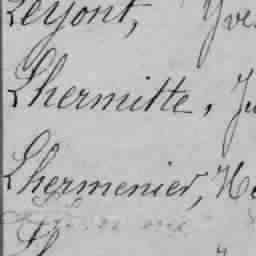 Leyont, Yve
Lhermitte, Ju
Lhermenier, He